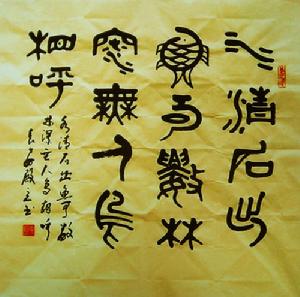 水清石出
魚可數林
深無人鳥
相呼
水清石出魚可數
林深無人鳥相呼